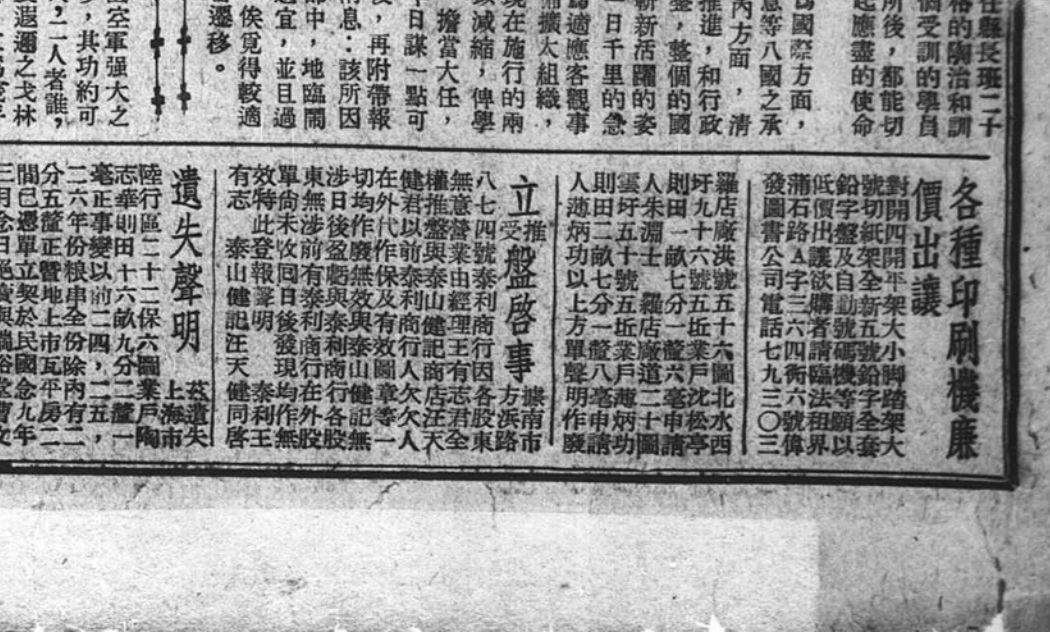 任縣長班二十
格的陶冶和訓
個受訓的學員
所後，都能切
起應盡的使命
爲國際方面，
意等八國之承
內方面，清
推進，和行政
整，整個的國
嶄新活躍的姿
一日千里的急
爲適應客觀事
擴大組織，
現在施行的兩
減縮，俾學
擔當大任，
日謀一點可
後，再附帶報
消息：該所因
部中，地臨鬧
適宜，並且過
俟覓得較適
遷移。
空軍强大之
，其功約可
，二人者誰，
遐邇之戈林
各種印刷機廉
價出讓
對開四開平架大小脚踏架大
號切紙架全新五號鉛字全套
鉛字盤及自動號碼機等願以
低價出讓欲購者請臨法租界
蒲石路A字三六四衖六號偉
發圖書公司電話七九三〇三
羅店廠洪號五十六圖北水西
圩九十六號五坵業戶沈松亭
則田一畝七分一釐六毫申請
人朱淵士　羅店廠道二十圖
雲圩五十號五坵業戶薄炳功
則田二畝七分一釐八毫申請
人薄炳功以上方單聲明作廢
立推受盤啓事
據南市方浜路
八七四號泰利商行因各股東
無意營業由經理王有志君全
權推盤與泰山健記商店汪天
健君以前泰利商行人欠欠人
在外代作保及有效圖章等一
切均作廢無效與泰山健記無
涉日後盈虧與泰利商行各股
東無涉前有泰利商行在外股
單尚未收回日後發現均作無
效特此登報聲明　泰利王
有志　泰山健記汪天健同啓
遺失聲明
茲遺失上海市
陸行區二十二保六圖業戶陶
志華則田十六畝九分二釐一
毫正事變以前二四，二五，
二六年份粮串全份除內有二
分五釐正曁地上市瓦平房二
間已遷單立契於民國念九年
三月念日絕賣與